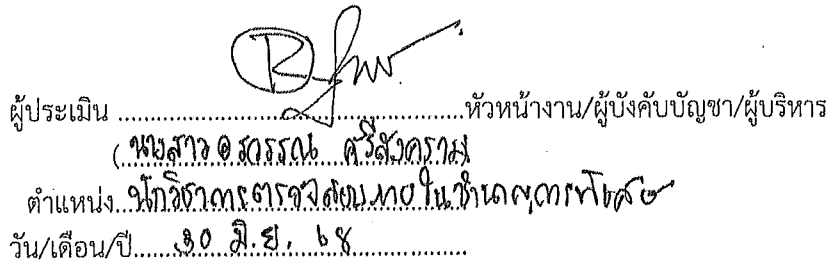 ผู้ประเมิน ........................................หัวหน้างาน/ผู้บังคับบัญชา/ผู้บริหาร
( นางสาวอรวรรณ ศรีสังคราม
ตำแหน่ง..นักวิชาการตรวจสอบภายในชำนาญการพิเศษ
วัน/เดือน/ปี.....30 มิ.ย. 68..................